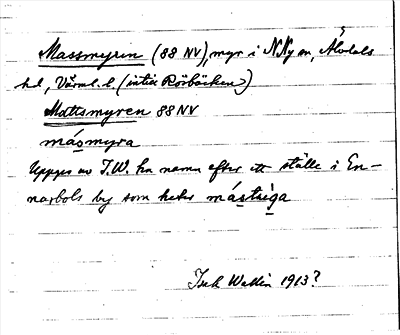 Massmyren (88 NV), myr i N Ny sn, Älvdals
hd, Värml. l. (intill Rörbäcken)
Mattsmyren 88 NV
måsmyra
Uppges av T.W. ha namn efter ett ställe i En-
narbols by som heter måstsiga
Wallin 1913?